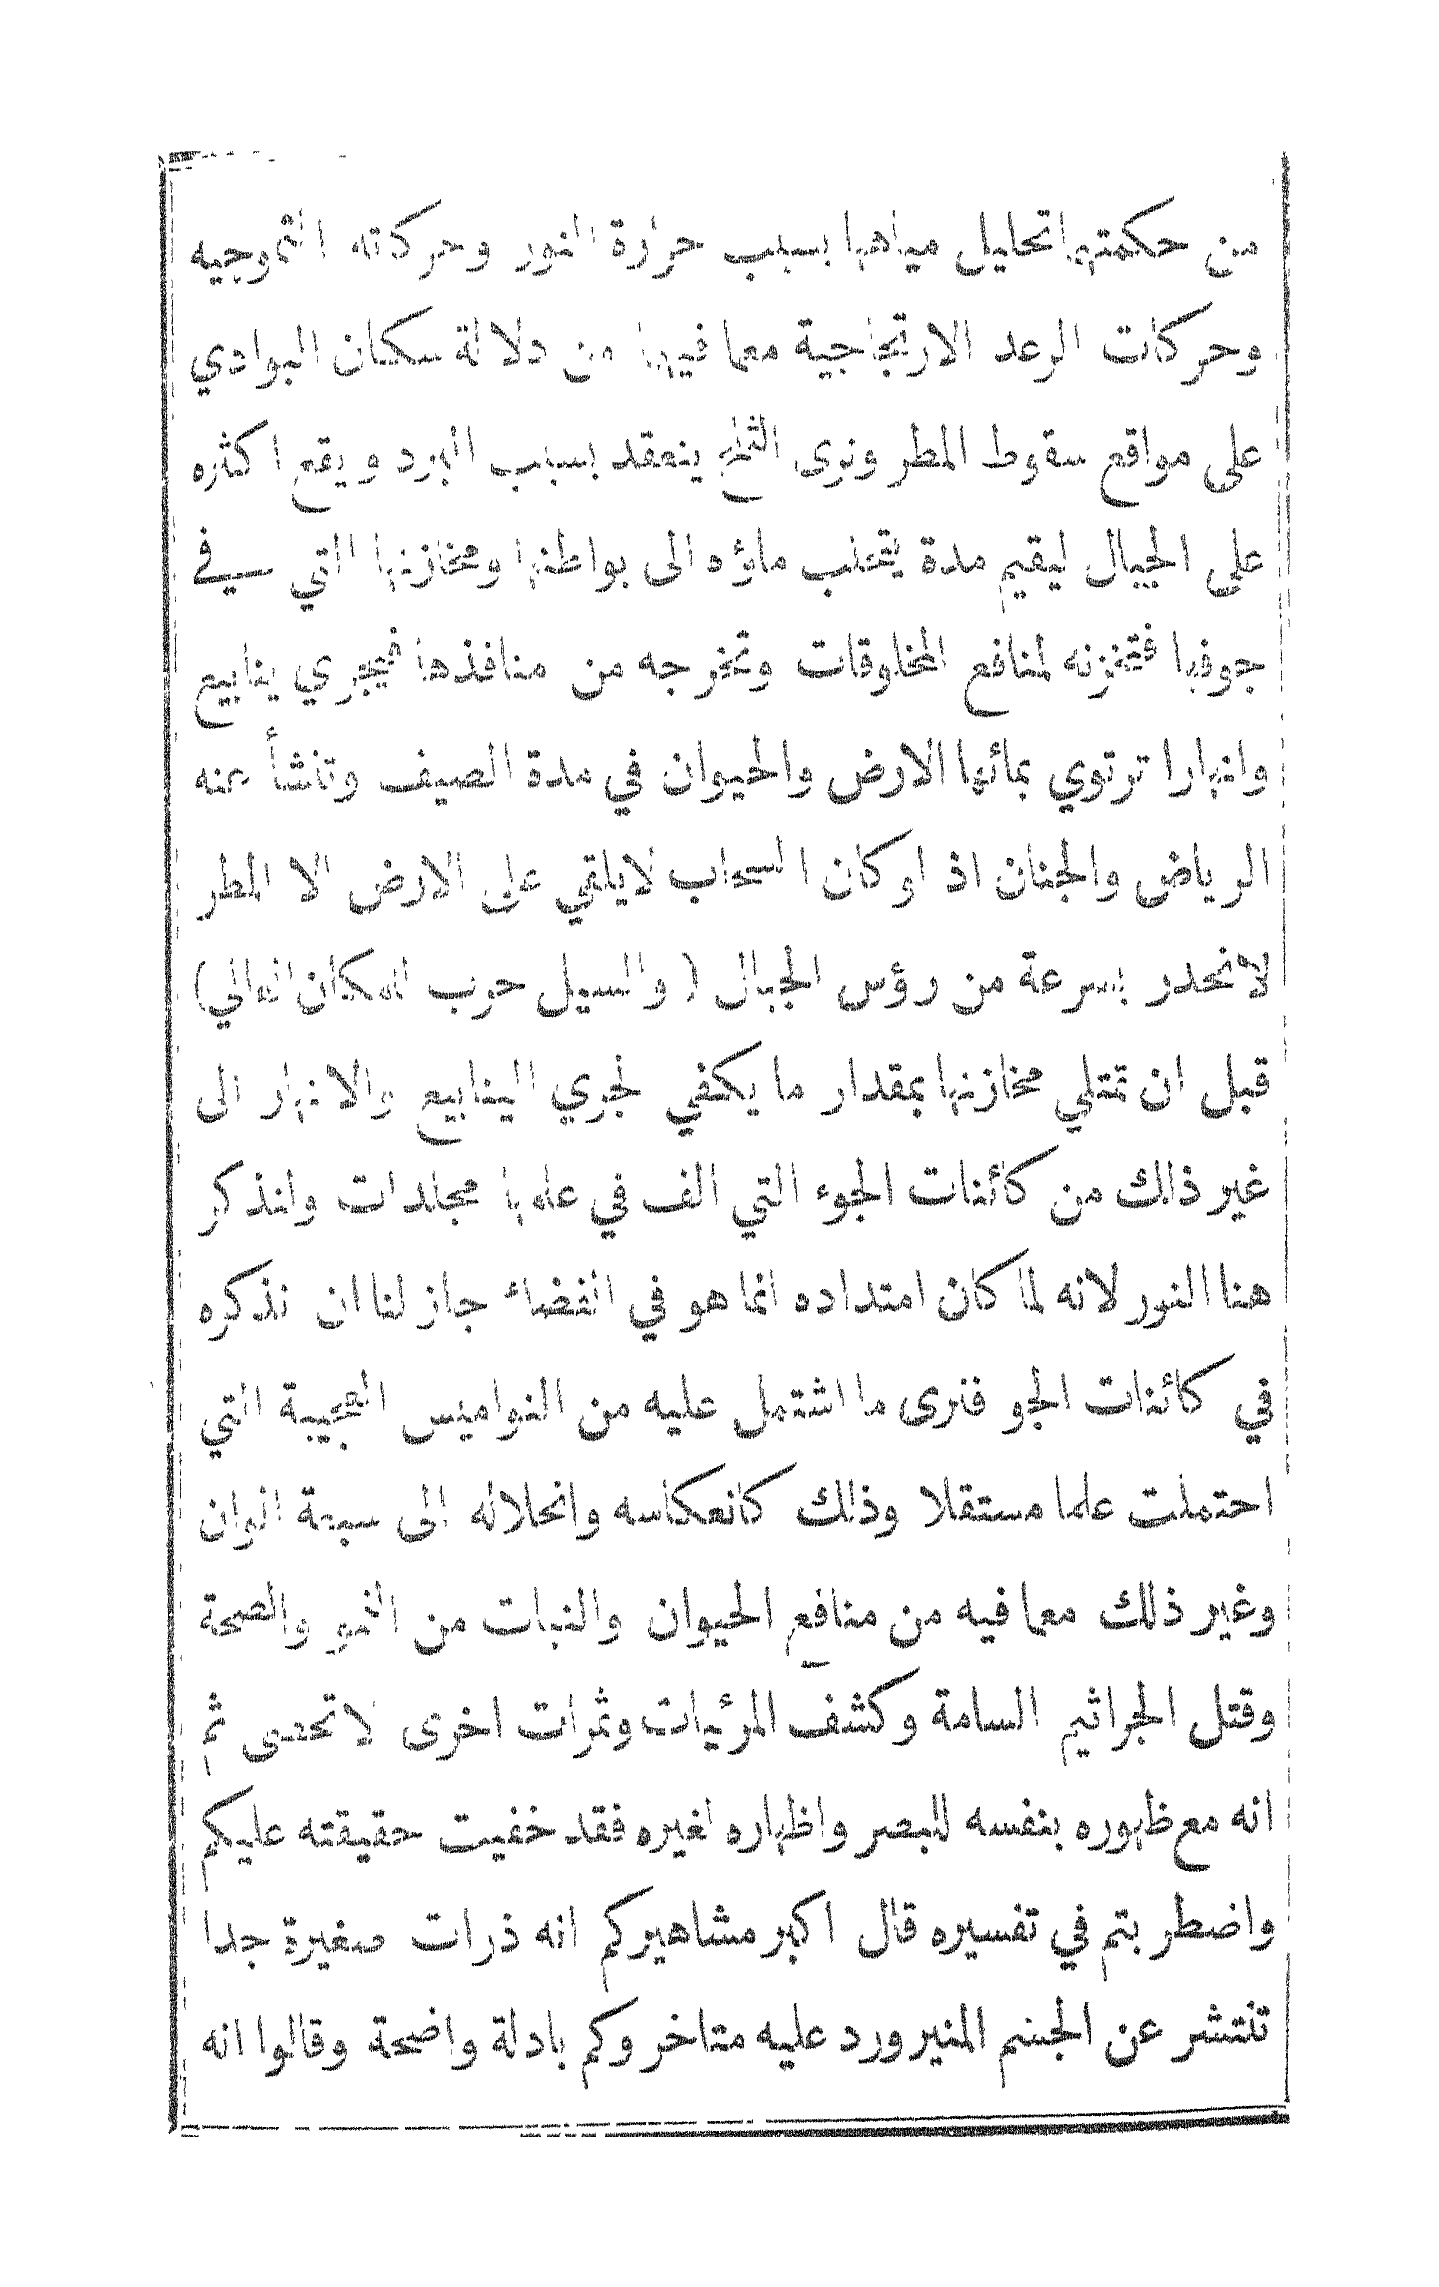 من حكمتها تحليل مياهها بسبب حرارة النور وحركته التموجيه
وحركات الرعد الارتجاجية مما فيها من دلالة سكان البوادي
على مواقع سقوط المطر ونرى الثلج ينعقد بسبب البرد ويقع اكثره
على الجبال ليقيم مدة يتحلب ماؤه الى بواطنها ومخازنها التي في
جوفها فتخزنه لمنافع المخلوقات وتخرجه من منافذها فيجري ينابيع
وانهارا ترتوي بمائها الارض والحيوان في مدة الصيف وتنشأ عنه
الرياض والجنان اذ لو كان السحاب لايلقي على الارض الا المطر
لانحدر بسرعة من رؤس الجبال ( والسيل حرب للمكان العالي)
قبل ان تمتلي مخازنها بمقدار ما يكفي لجري الينابيع والانهار الى
غير ذلك من كائنات الجوء التي الف في علمها مجلدات ولنذكر
هنا النور لانه لما كان امتداده انما هو في الفضاء جاز لنا ان نذكره
في كائنات الجو فنرى ما اشتمل عليه من النواميس العجيبة التي
احتملت علما مستقلا وذلك كانعكاسه وانحلاله الى سبعة الوان
وغير ذلك مما فيه من منافع الحيوان والنبات من النمو والصحة
وقتل الجراثيم السامة وكشف المرئيات وثمرات اخرى لاتحصى ثم
انه مع ظهوره بنفسه للبصر واظهاره لغيره فقد خفيت حقيقته عليكم
واضطربتم في تفسيره قال اكبر مشاهيركم انه ذرات صغيرة جدا
تنتشر عن الجسم المنير ورد عليه متاخروكم بادلة واضحة وقالوا انه